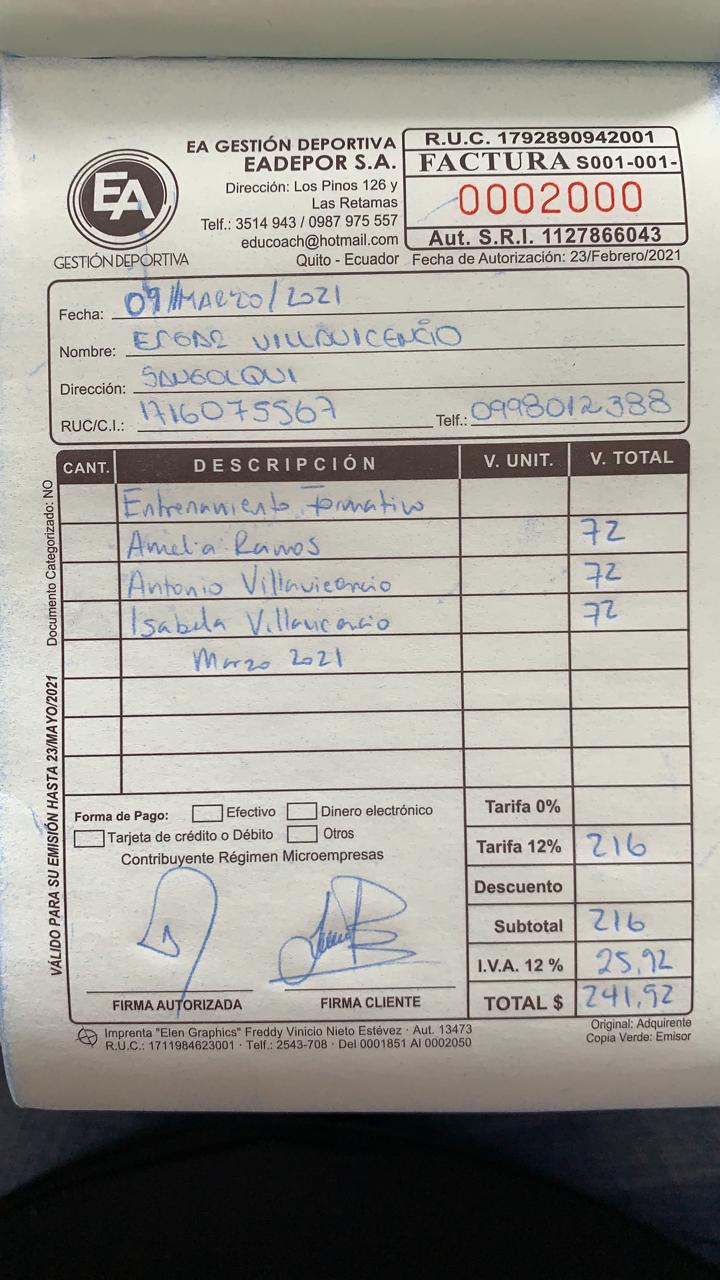 EA
GESTIÓN DEPORTIVA
EA GESTIÓN DEPORTIVA
EADEPOR S.A.
Dirección: Los Pinos 126 y
Las Retamas
Telf.: 3514 943 / 0987 975 557
educoach@hotmail.com
Quito - Ecuador
R.U.C. 1792890942001
FACTURA S001-001-
0002000
Aut. S.R.I. 1127866043
Fecha de Autorización: 23/Febrero/2021
Fecha: 09/MARZO/2021
Nombre: EDGAR VILLAVICENCIO
Dirección: SANGOLQUI
RUC/C.I.: 1716075567 Telf.: 0998012388
CANT. DESCRIPCIÓN V. UNIT. V. TOTAL
Entrenamiento Formativo
Amelia Ramos 72
Antonio Villavicencio 72
Isabela Villavicencio 72
Marzo 2021
Documento Categorizado: NO
VÁLIDO PARA SU EMISIÓN HASTA 23/MAYO/2021
Forma de Pago: Efectivo Dinero electrónico
Tarjeta de crédito o Débito Otros
Contribuyente Régimen Microempresas
Tarifa 0%
Tarifa 12% 216
Descuento
Subtotal 216
I.V.A. 12 % 25,92
TOTAL $ 241,92
FIRMA AUTORIZADA FIRMA CLIENTE
Imprenta "Elen Graphics" Freddy Vinicio Nieto Estévez · Aut. 13473
R.U.C.: 1711984623001 · Telf.: 2543-708 · Del 0001851 Al 0002050
Original: Adquirente
Copia Verde: Emisor